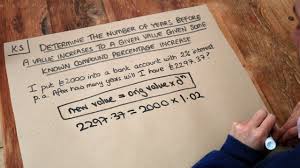 K.S DETERMINE THE NUMBER OF YEARS BEFORE
A VALUE INCREASES TO A GIVEN VALUE GIVEN SOME
KNOWN COMPOUND PERCENTAGE INCREASE
I put £2000 into a bank account with 2% interest
p.a. After how many years will I have £2297.37?
new value = orig value × Δⁿ
2297.37 = 2000 × 1.02